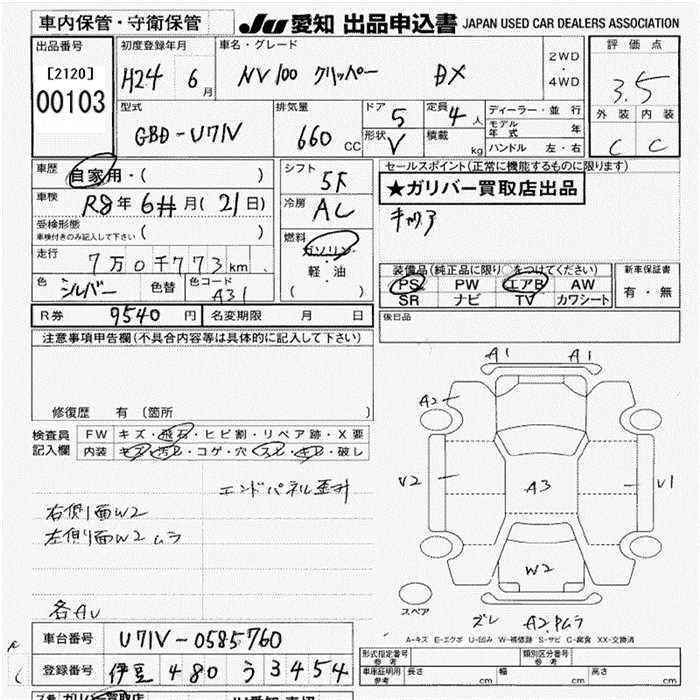 車内保管・守衛保管
JU 愛知 出品申込書 JAPAN USED CAR DEALERS ASSOCIATION
出品番号
[2120]
00103
初度登録年月
H24 6月
車名・グレード
NV100 クリッパー DX
2WD・4WD
評価点
3.5
外装 内装
C C
型式
GBD-U71V
排気量
660 CC
ドア 5
形状 V
定員 4人
積載 kg
ディーラー・並行
モデル年式 年
ハンドル 左・右
車歴
自家用・( )
車検
R8年6#月(21日)
受検形態
車検付きのみ記入して下さい ( )
走行
7万0千773km
色 シルバー 色替 色コード A31
シフト
5F
冷房
AC
燃料
ガソリン
軽・油
( )
セールスポイント(正常に機能するものに限ります)
★ガリバー買取店出品
キャリア
装備品(純正品に限り○をつけてください)
PS PW エアB AW
SR ナビ TV カワシート
新車保証書
有・無
R券 9540円 名変期限 月 日
後日品
注意事項申告欄(不具合内容等は具体的に記入して下さい)
修復歴 有(箇所 )
検査員記入欄
FW キズ・飛石・ヒビ割・リペア跡・X要
内装 キズ・汚レ・コゲ・穴・スレ・キレ・破レ
エンドパネル歪み
右側面W2
左側面W2ムラ
各AU
A1 A1
A2
V2 A3 V1
W2
スペア
ズレ A2.Pムラ
A-キズ E-エクボ U-凹み W-補修跡 S-サビ C-腐食 XX-交換済
車台番号 U71V-0585760
登録番号 伊豆 480 う 3454
形式指定番号 参考
類別区分番号 参考
車庫証明用 参考 長さ cm 幅 cm 高さ cm